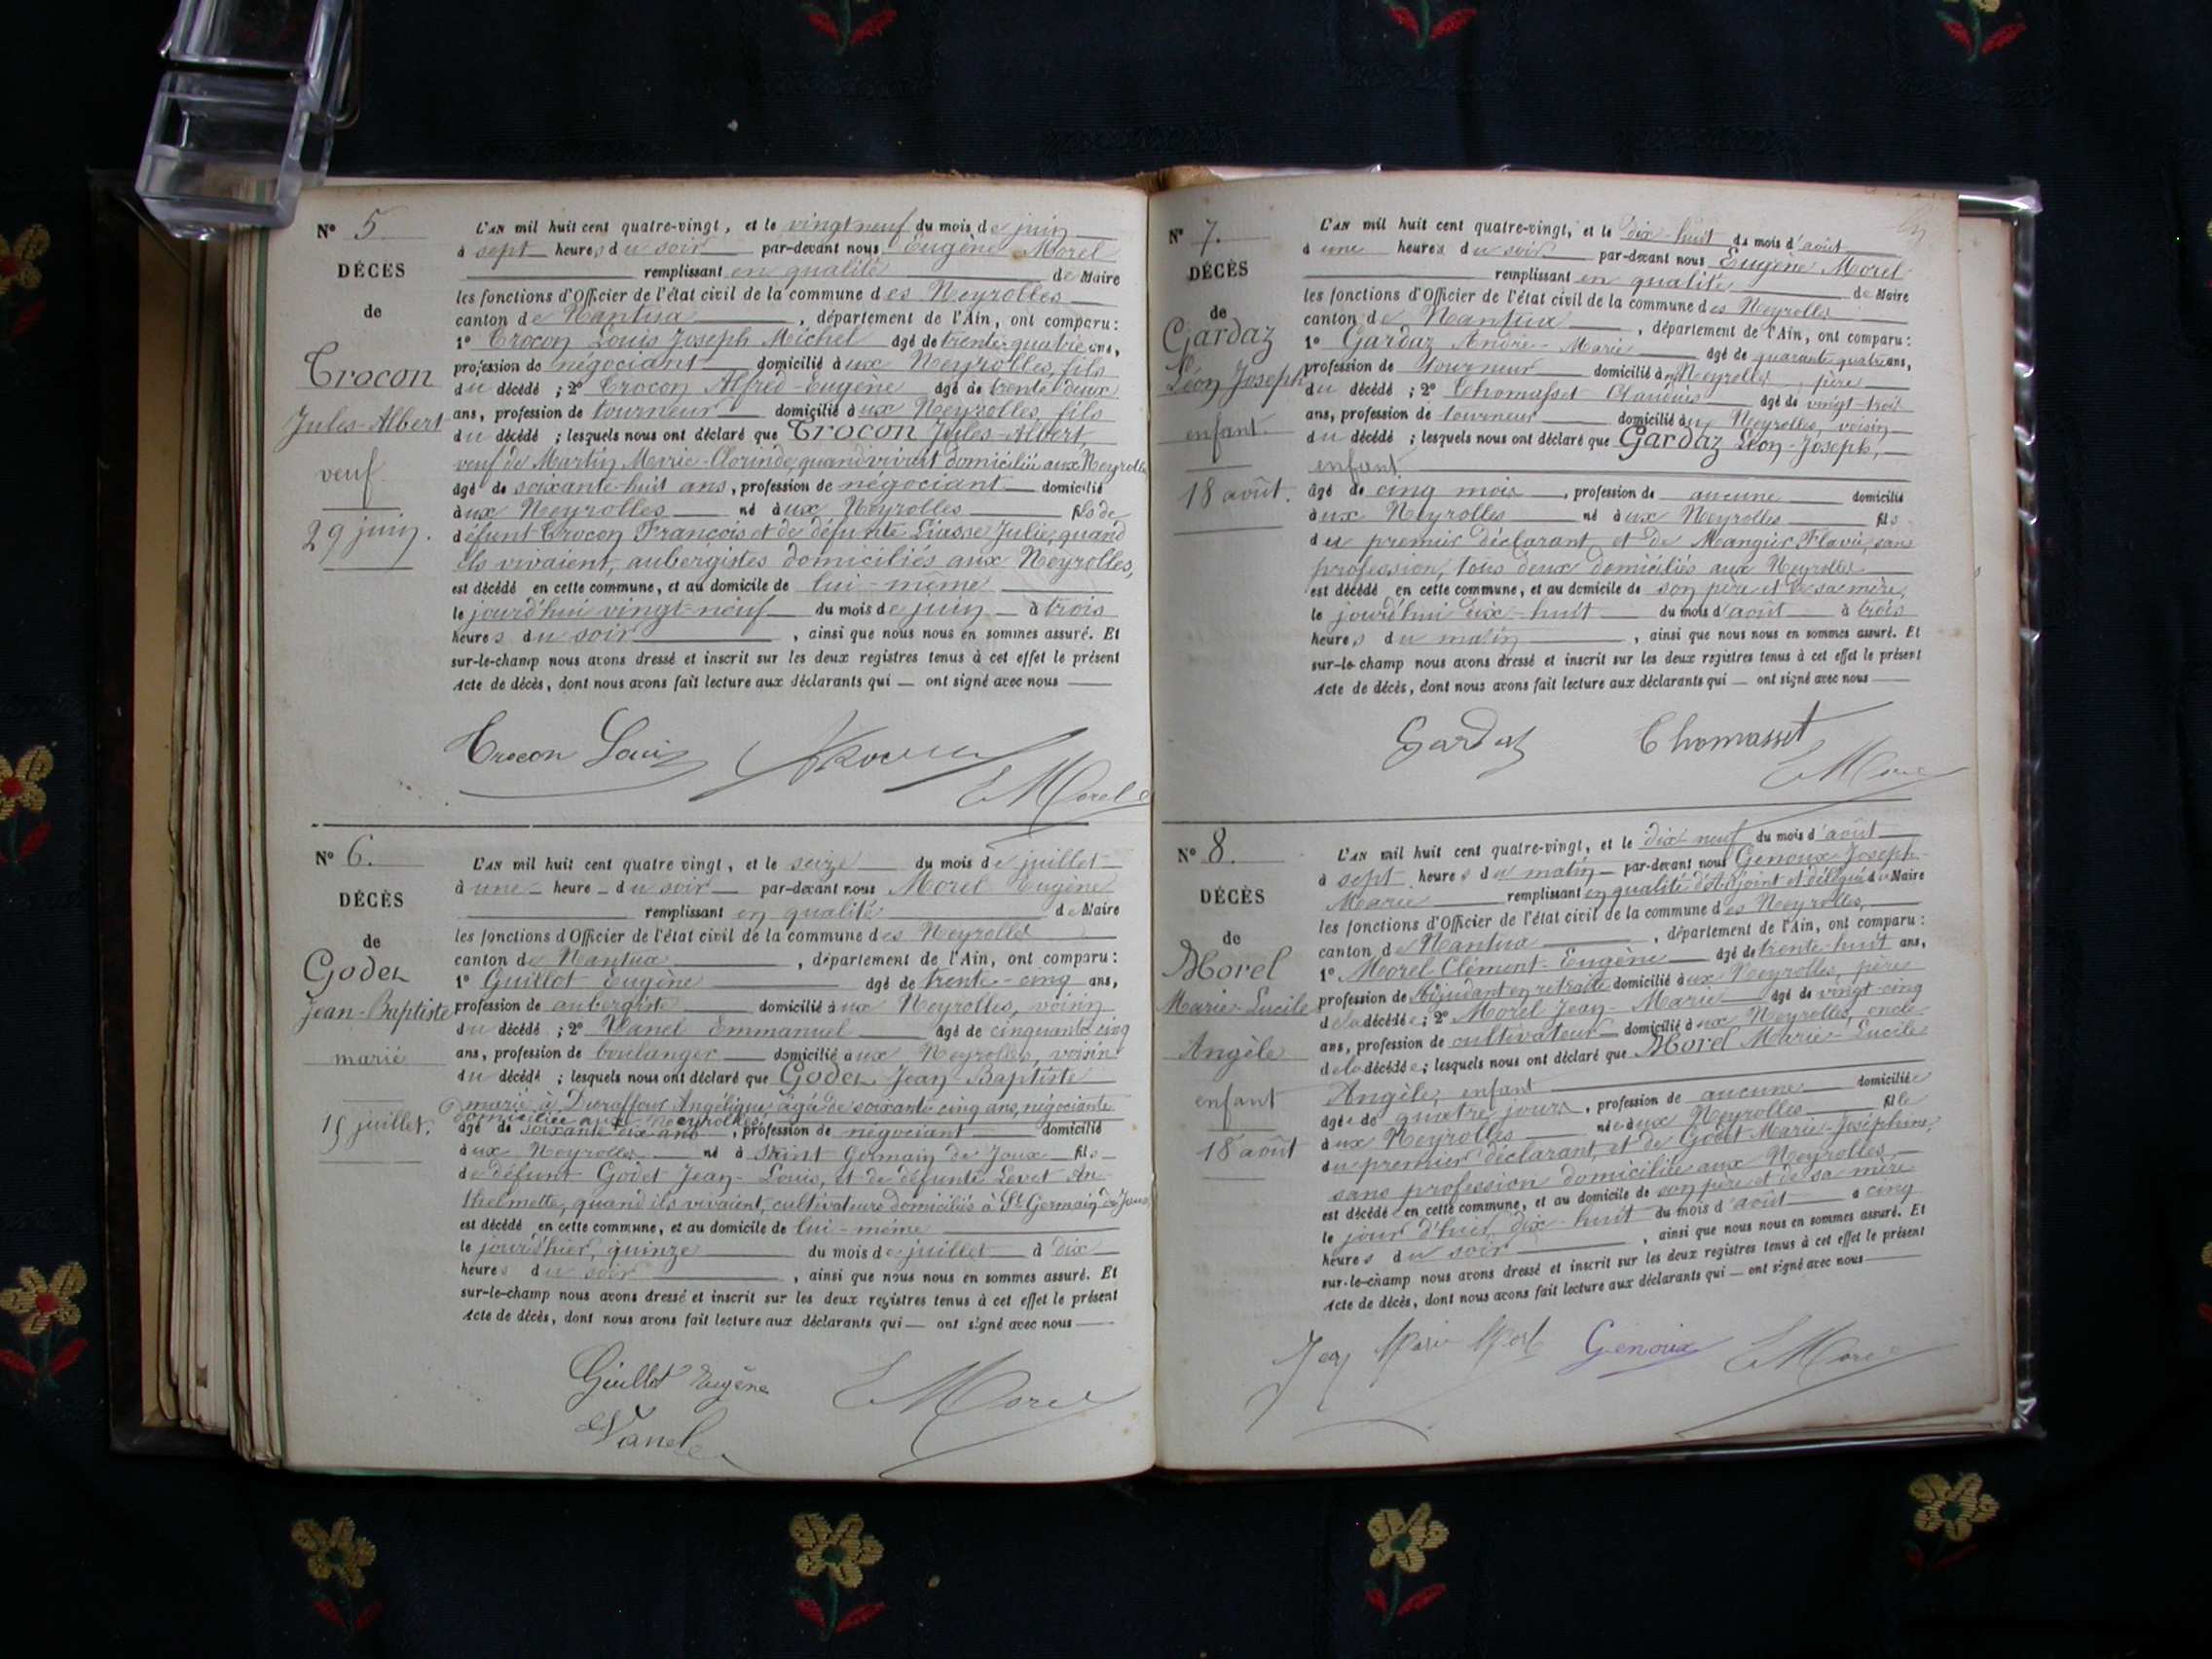 N° 5
DÉCÈS
de
Crocon
Jules-Albert
veuf
29 juin.
L'AN mil huit cent quatre-vingt, et le vingt neuf du mois de juin
à sept heures du soir par-devant nous Eugène Morel
remplissant en qualité de Maire
les fonctions d'Officier de l'état civil de la commune des Neyrolles
canton de Nantua, département de l'Ain, ont comparu:
1° Crocon Louis Joseph Michel âgé de trente-quatre ans,
profession de négociant domicilié aux Neyrolles, fils
du décédé; 2° Crocon Alfred-Eugène âgé de trente deux
ans, profession de tourneur domicilié aux Neyrolles, fils
du décédé; lesquels nous ont déclaré que Crocon Jules-Albert,
veuf de Martin Marie-Clorinde, quand vivait domiciliée aux Neyrolles
âgé de soixante-huit ans, profession de négociant domicilié
aux Neyrolles né aux Neyrolles fils de
défunt Crocon François et de défunte Julie, quand
ils vivaient, aubergistes domiciliés aux Neyrolles,
est décédé en cette commune, et au domicile de lui-même
le jourd'hui vingt-neuf du mois de juin à trois
heures du soir, ainsi que nous nous en sommes assuré. Et
sur-le-champ nous avons dressé et inscrit sur les deux registres tenus à cet effet le présent
Acte de décès, dont nous avons fait lecture aux déclarants qui — ont signé avec nous
Crocon Louis
E Morel
N° 6.
DÉCÈS
de
Godet
Jean-Baptiste
marié
15 juillet.
L'AN mil huit cent quatre vingt, et le seize du mois de juillet
à une heure du soir par-devant nous Morel Eugène
remplissant en qualité de Maire
les fonctions d'Officier de l'état civil de la commune des Neyrolles
canton de Nantua, département de l'Ain, ont comparu:
1° Guillot Eugène âgé de trente-cinq ans,
profession de aubergiste domicilié aux Neyrolles, voisin
du décédé; 2° Vanel Emmanuel âgé de cinquante cinq
ans, profession de boulanger domicilié aux Neyrolles, voisin
du décédé; lesquels nous ont déclaré que Godet Jean-Baptiste
marié à Duraffour Angélique, âgée de soixante cinq ans, négociante
domiciliée aux Neyrolles,
âgé de soixante dix ans, profession de négociant domicilié
aux Neyrolles né à Saint Germain de Joux fils
de défunt Godet Jean-Louis, et de défunte Levet An-
thelmette, quand ils vivaient, cultivateurs domiciliés à St Germain de Joux,
est décédé en cette commune, et au domicile de lui-même
le jour d'hier, quinze du mois de juillet à dix
heures du soir, ainsi que nous nous en sommes assuré. Et
sur-le-champ nous avons dressé et inscrit sur les deux registres tenus à cet effet le présent
Acte de décès, dont nous avons fait lecture aux déclarants qui — ont signé avec nous
Guillot Eugène
E Morel
Vanel
N° 7.
DÉCÈS
de
Gardaz
Léon Joseph
enfant
18 août.
L'AN mil huit cent quatre-vingt, et le dix huit du mois d'août
à une heures du soir par-devant nous Eugène Morel
remplissant en qualité de Maire
les fonctions d'Officier de l'état civil de la commune des Neyrolles
canton de Nantua, département de l'Ain, ont comparu:
1° Gardaz André-Marie âgé de quarante quatre ans,
profession de tourneur domicilié aux Neyrolles, père
du décédé; 2° Thomasset Claudius âgé de vingt-trois
ans, profession de tourneur domicilié aux Neyrolles, voisin
du décédé; lesquels nous ont déclaré que Gardaz Léon-Joseph,
enfant
âgé de cinq mois, profession de aucune domicilié
aux Neyrolles né aux Neyrolles fils
du premier déclarant et de Mangier Flavie, sans
profession, tous deux domiciliés aux Neyrolles
est décédé en cette commune, et au domicile de son père et de sa mère,
le jourd'hui dix-huit du mois d'août à trois
heures du matin, ainsi que nous nous en sommes assuré. Et
sur-le-champ nous avons dressé et inscrit sur les deux registres tenus à cet effet le présent
Acte de décès, dont nous avons fait lecture aux déclarants qui — ont signé avec nous
Gardaz Thomasset
E Morel
N° 8.
DÉCÈS
de
Morel
Marie-Lucile
Angèle
enfant
18 août
L'AN mil huit cent quatre-vingt, et le dix neuf du mois d'août
à sept heures du matin par-devant nous Genoux Joseph-
Marie remplissant en qualité d'Adjoint et délégué du Maire
les fonctions d'Officier de l'état civil de la commune des Neyrolles,
canton de Nantua, département de l'Ain, ont comparu:
1° Morel Clément-Eugène âgé de trente-huit ans,
profession de Adjudant en retraite domicilié aux Neyrolles, père
de la décédée; 2° Morel Jean-Marie âgé de vingt-cinq
ans, profession de cultivateur domicilié aux Neyrolles, oncle
de la décédée; lesquels nous ont déclaré que Morel Marie-Lucile
Angèle, enfant
âgée de quatre jours, profession de aucune domiciliée
aux Neyrolles née aux Neyrolles fille
du premier déclarant, et de Godet Marie-Joséphine,
sans profession domiciliée aux Neyrolles
est décédée en cette commune, et au domicile de son père et de sa mère
le jour d'hier, dix-huit du mois d'août à cinq
heures du soir, ainsi que nous nous en sommes assuré. Et
sur-le-champ nous avons dressé et inscrit sur les deux registres tenus à cet effet le présent
Acte de décès, dont nous avons fait lecture aux déclarants qui — ont signé avec nous
Genoux E Morel